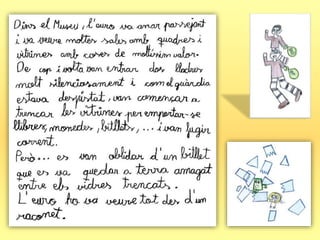 Dins el Museu, l'euro va anar passejant
i va veure moltes sales amb quadres i
vitrines amb coses de moltíssim valor.
De cop i volta van entrar dos lladres
molt silenciosament i com el guàrdia
estava despistat, van començar a
trencar les vitrines per emportar-se
llibres, monedes, billets, ... i van fugir
corrent.
Però... es van oblidar d'un billet
que es va quedar a terra amagat
entre els vidres trencats.
L'euro ho va veure tot des d'un
raconet.